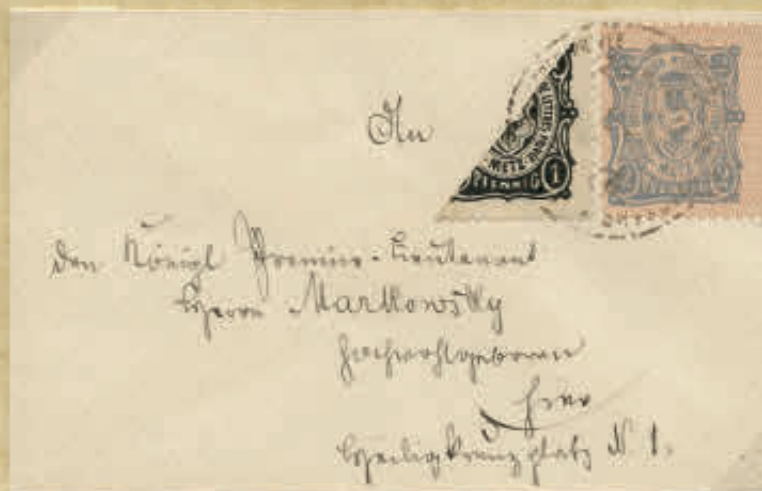 METZ
PFENNIG 1
An
den Königl Premier-Lieutenant
Herrn Markowsky
Hochwohlgeboren
hier
Heiligkreuzplatz N 1.